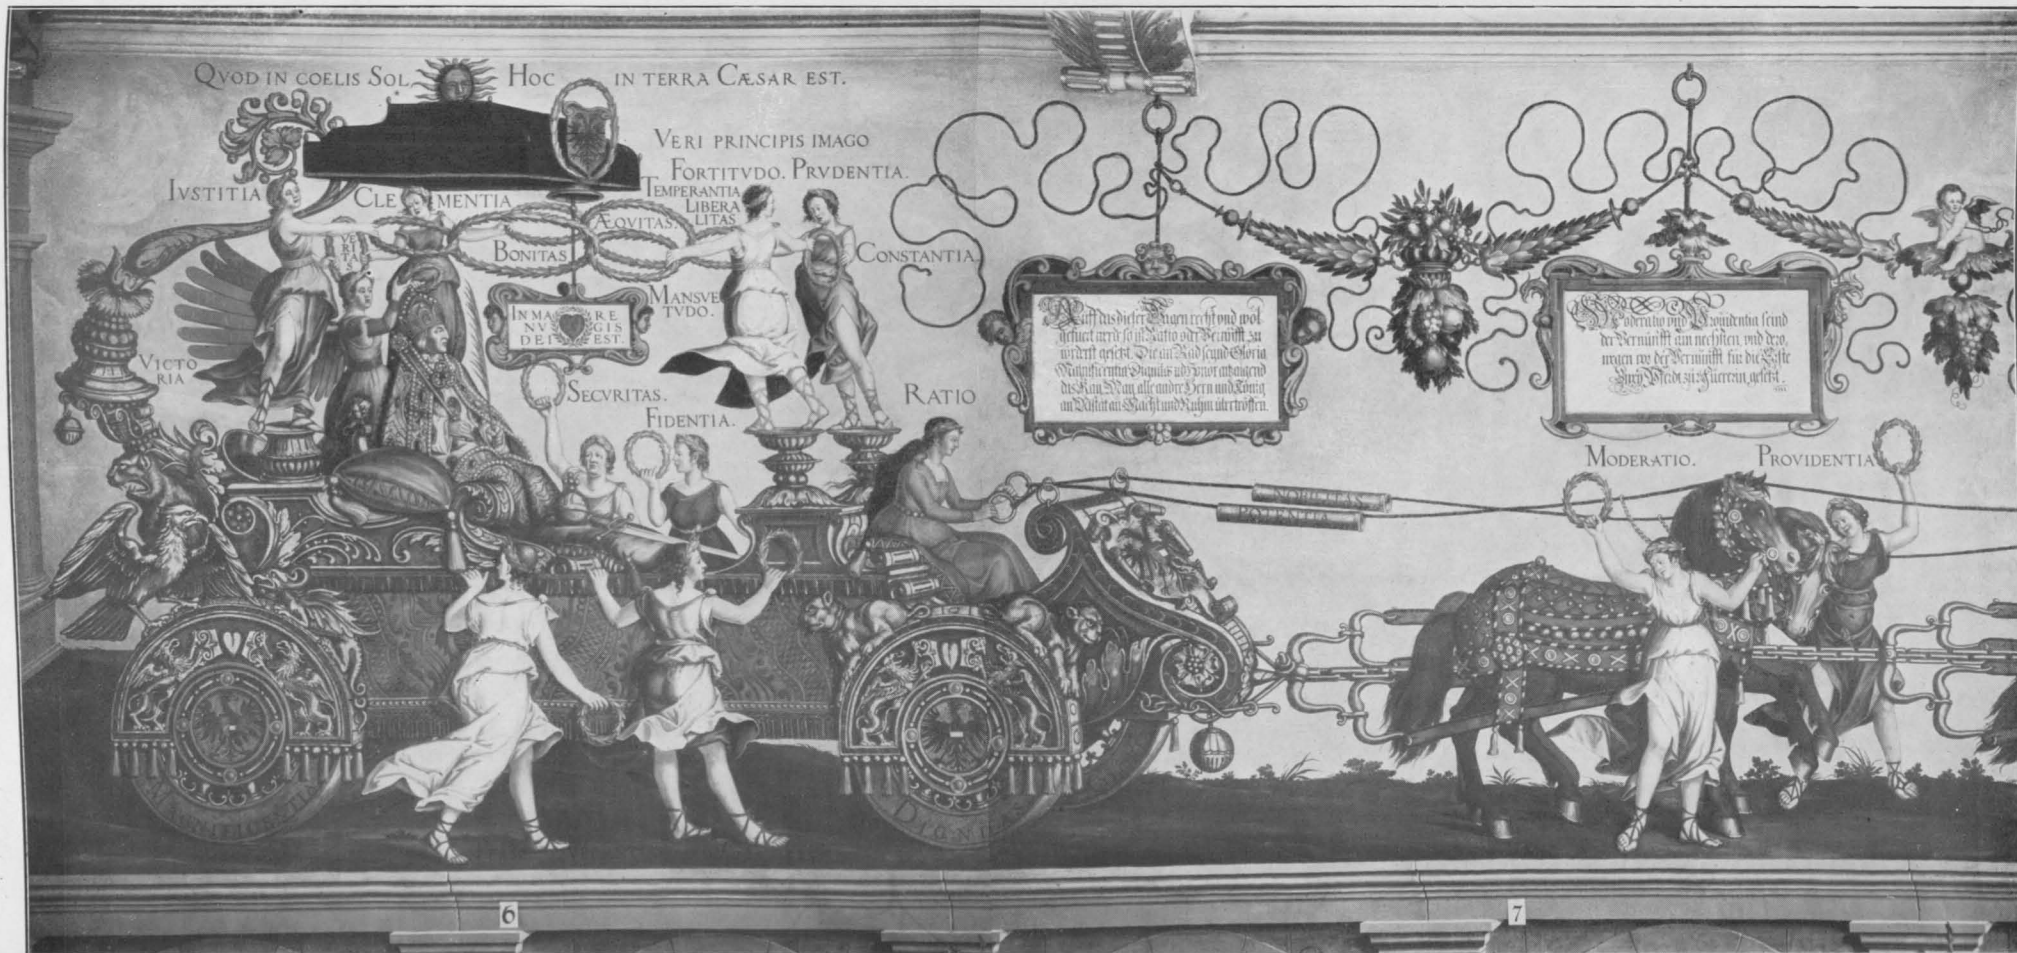 QVOD IN COELIS SOL HOC IN TERRA CÆSAR EST.
VERI PRINCIPIS IMAGO
FORTITVDO. PRVDENTIA.
TEMPERANTIA
LIBERA
LITAS
IVSTITIA
CLEMENTIA
VE
RI
TA
S
BONITAS
ÆQVITAS.
CONSTANTIA.
MANSVE
TVDO.
IN MA RE
NV GIS
DEI EST.
VICTO
RIA
SECVRITAS.
FIDENTIA.
RATIO
Auff das dieser Wagen recht vnd wol
gefuert werd so ist Ratio oder Vernunfft zu
vorderst gesetzt. Die an Rad seynd Gloria
Magnificentia Dignitas vnd Honor anzaigend
das Kay. May. alle andre Hern und König
an Macht und Ruhm übertroffen.
Moderatio vnd Providentia seind
der Vernunfft am nechsten, vnd dero
wegen von der Vernunfft für die Erste
Zwey Pferdt zu Fuererin gesetzt.
NOBILITAS
POTENTIA
MODERATIO.
PROVIDENTIA
MAGNIFICENTIA
DIGNITAS
6
7